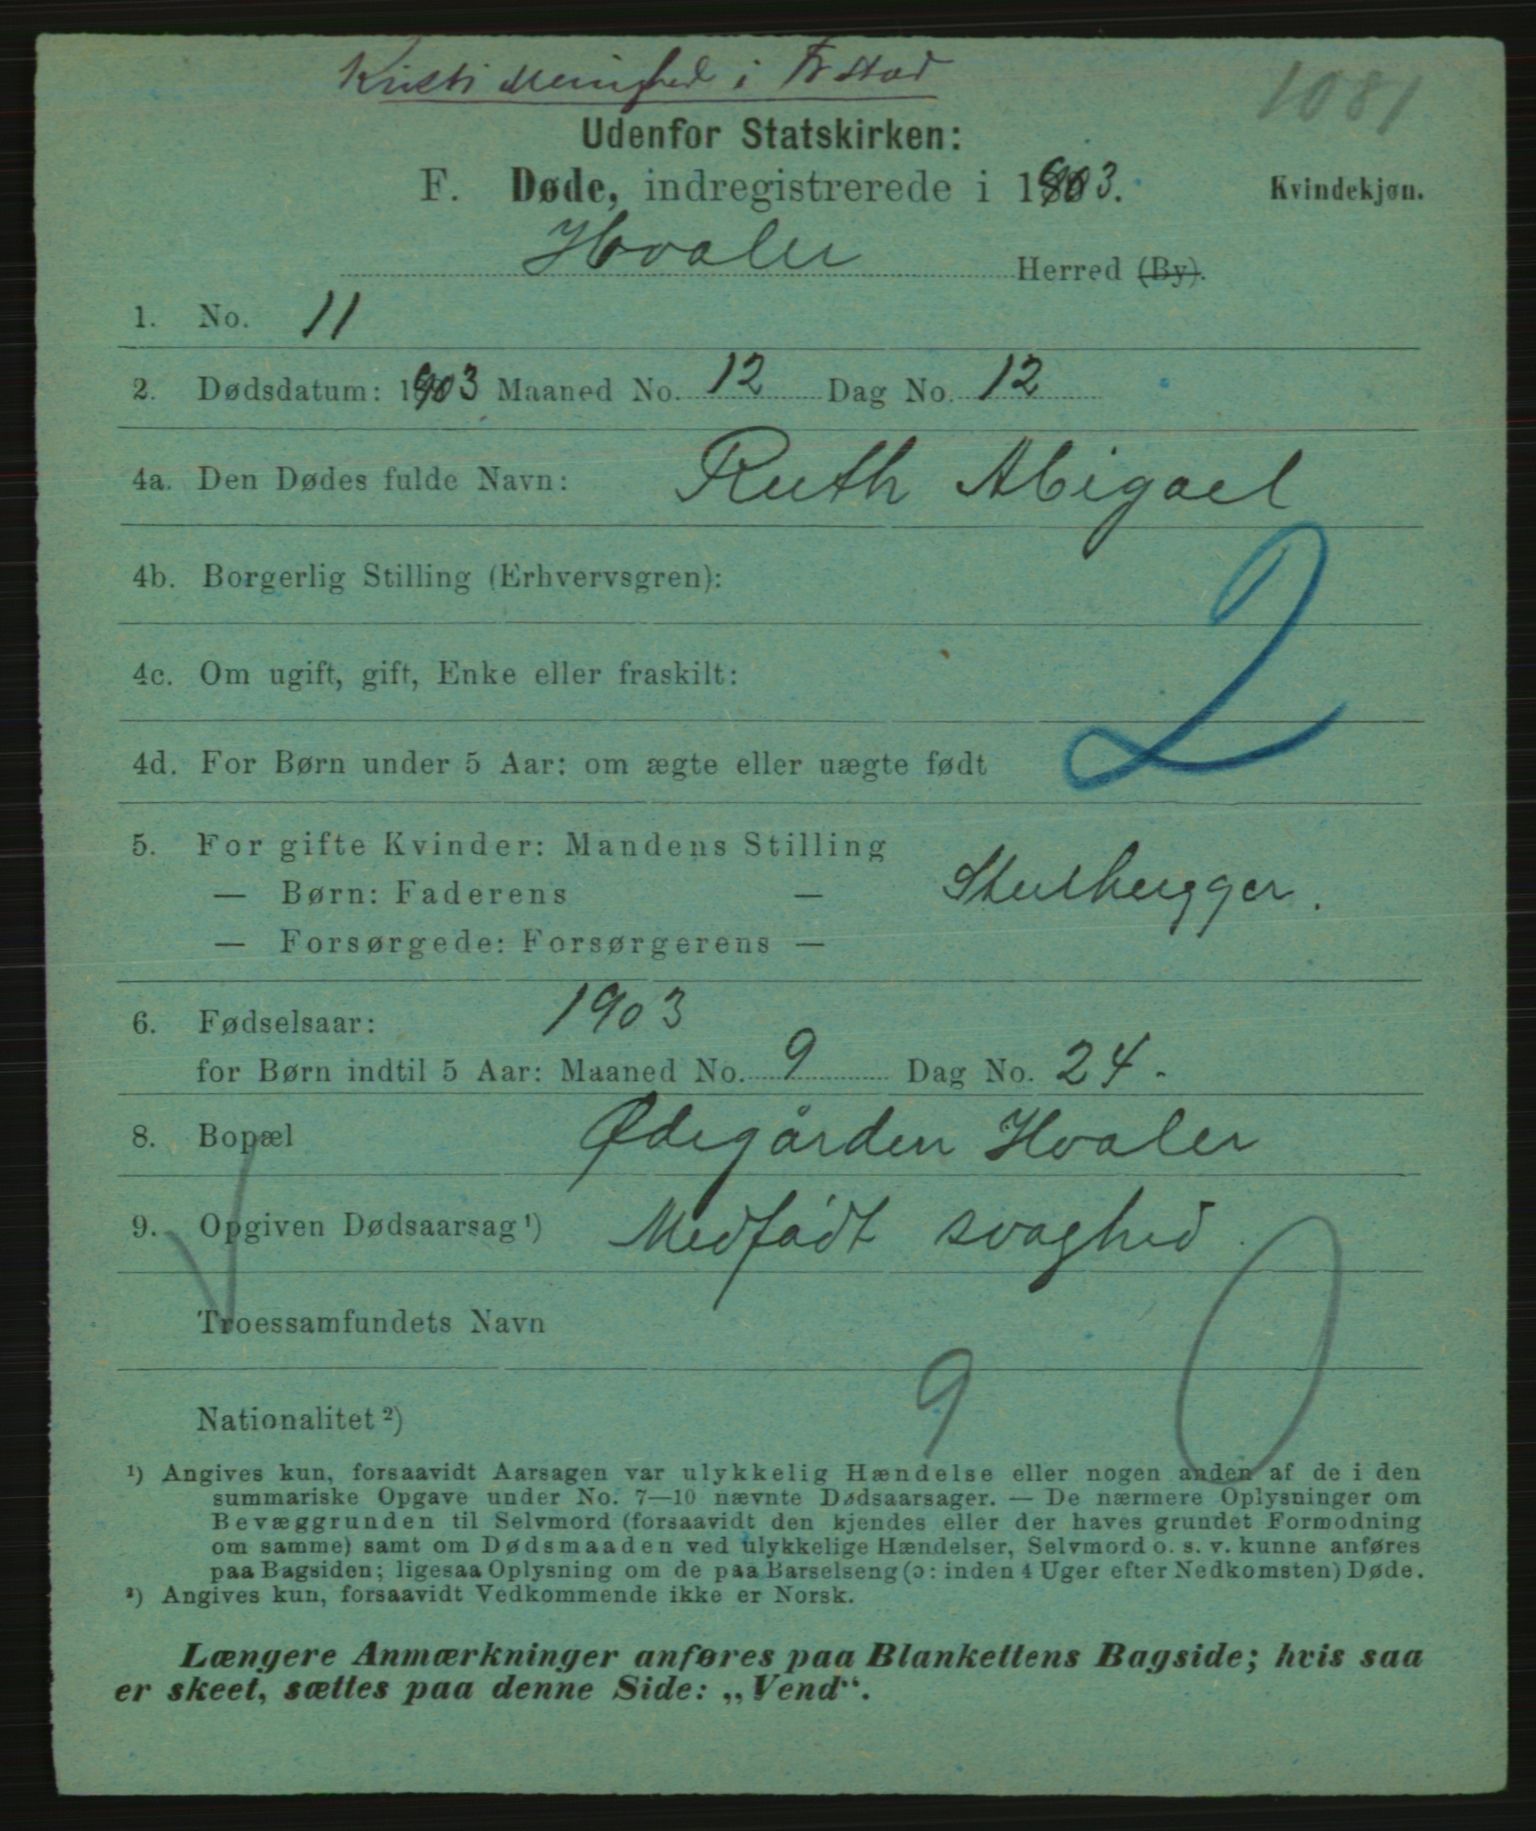 Kristi Menighed i Frstad
1081
Udenfor Statskirken:
F. Døde, indregistrerede i 1903. Kvindekjøn.
Hvaler Herred (By).
1. No. 11
2. Dødsdatum: 1903 Maaned No. 12 Dag No. 12
4a. Den Dødes fulde Navn: Ruth Abigael
4b. Borgerlig Stilling (Erhvervsgren):
4c. Om ugift, gift, Enke eller fraskilt:
2
4d. For Børn under 5 Aar: om ægte eller uægte født
5. For gifte Kvinder: Mandens Stilling
— Børn: Faderens — Stenhugger.
— Forsørgede: Forsørgerens —
6. Fødselsaar: 1903
for Børn indtil 5 Aar: Maaned No. 9 Dag No. 24.
8. Bopæl Ødegården Hvaler
9. Opgiven Dødsaarsag ¹) Medfødt svaghed.
Troessamfundets Navn
9 0
Nationalitet ²)
¹) Angives kun, forsaavidt Aarsagen var ulykkelig Hændelse eller nogen anden af de i den
summariske Opgave under No. 7—10 nævnte Dødsaarsager. — De nærmere Oplysninger om
Bevæggrunden til Selvmord (forsaavidt den kjendes eller der haves grundet Formodning
om samme) samt om Dødsmaaden ved ulykkelige Hændelser, Selvmord o. s. v. kunne anføres
paa Bagsiden; ligesaa Oplysning om de paa Barselseng (ɔ: inden 4 Uger efter Nedkomsten) Døde.
²) Angives kun, forsaavidt Vedkommende ikke er Norsk.
Længere Anmærkninger anføres paa Blankettens Bagside; hvis saa
er skeet, sættes paa denne Side: „Vend“.